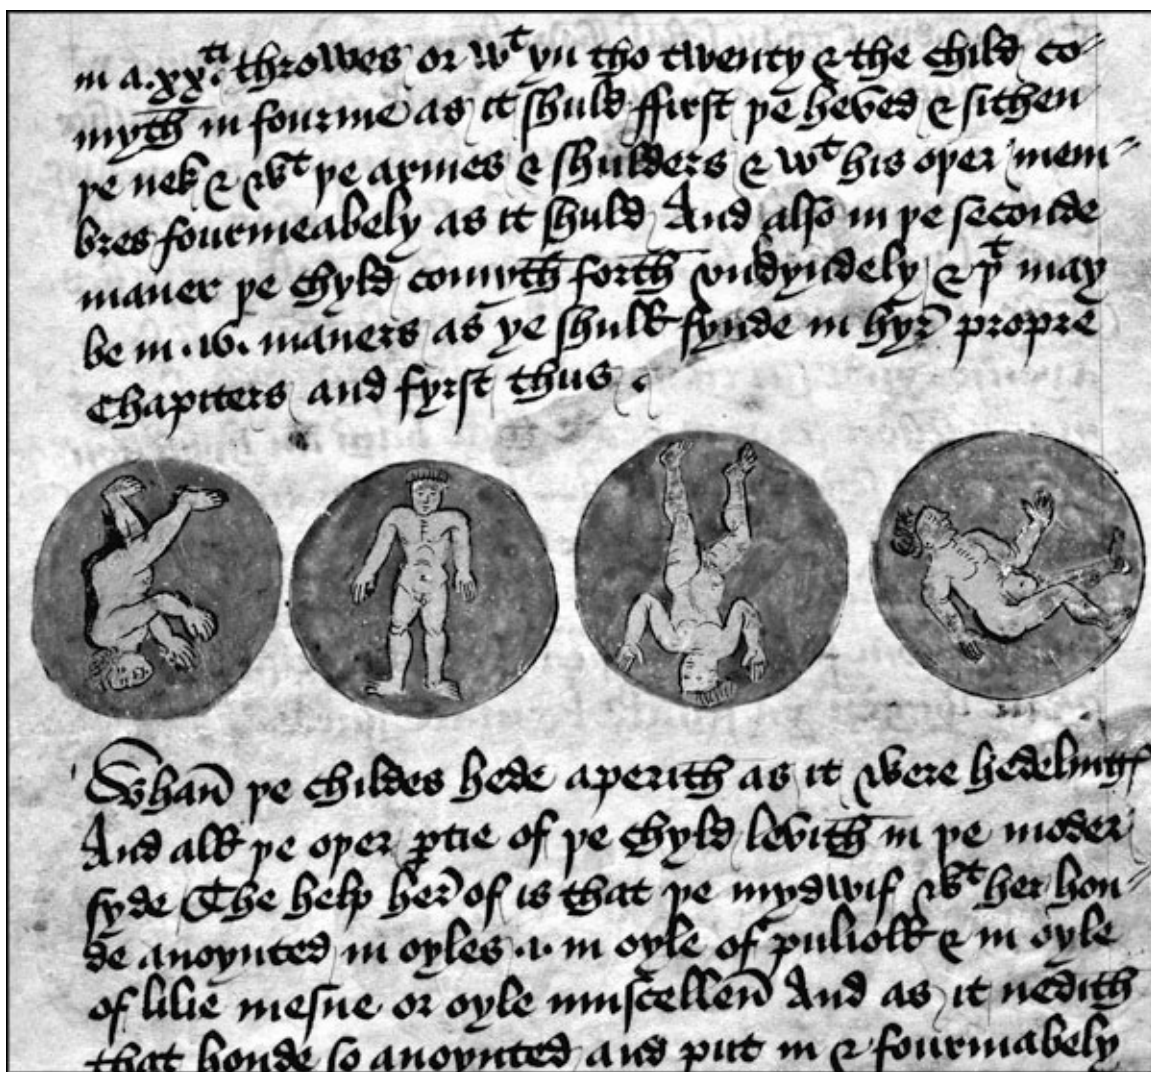 in a .xxti. throwes or wt yn tho twenty & the child co〃
myth in fourme as it shuld ffirst þe heved & sithen
þe nek & wt þe armes & shulders & wt his oþer mem〃
bres fourmeabely as it shuld And also in þe seconde
maner þe chyld comyth forth vnkyndely & þt may
be in .16. maners as ye shull fynde in hyr̄ propre
Chapiters and fyrst thus
Whan̄ þe childes hede aperith as it were hedelings
And all þe oþer ꝑtie of þe chyld levith in þe moder
syde The help her̄ of is that þe mydwif wt her hon〃
de anoynted in oyles .i. in oyle of pulioll & in oyle
of lilie mesne or oyle muscellen̄ And as it nedith
that honde so anoynted and put in & fourmabely